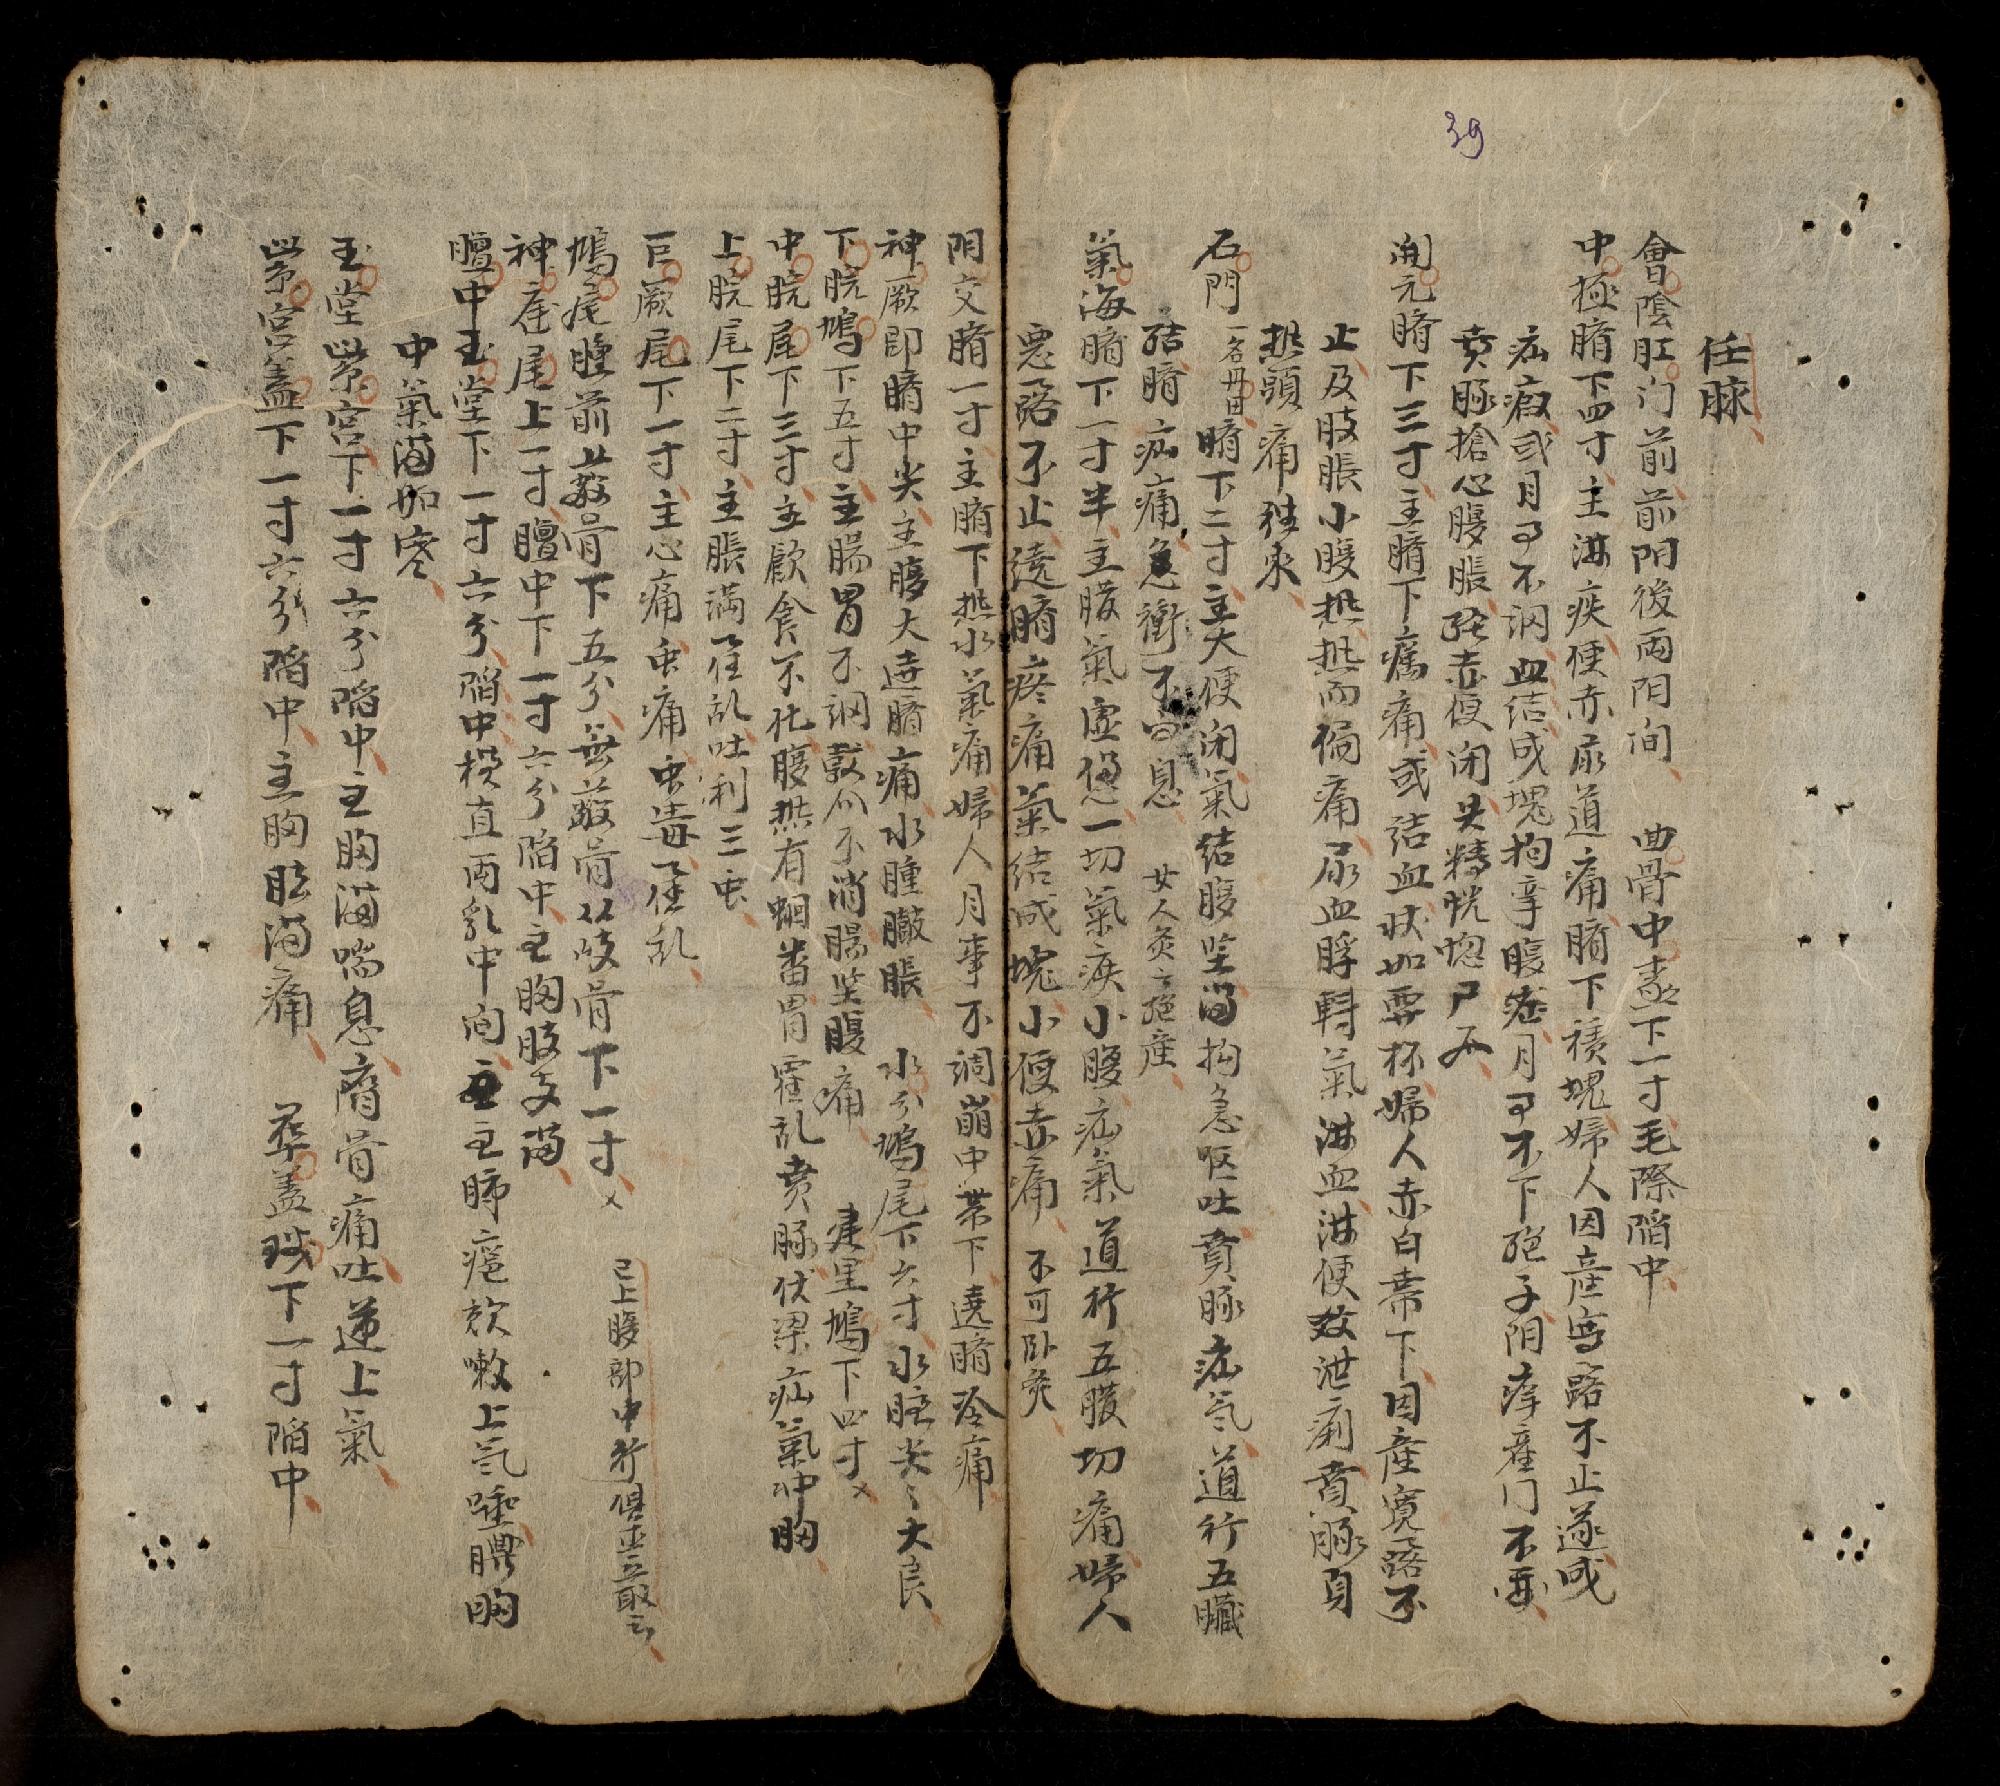 39
任脉
會陰肛门前前阴後兩阴间 曲骨中極下一寸毛際陷中
中極臍下四寸主淋疾便赤尿道痛臍下積塊婦人因產惡露不止遂成
疝瘕或月事不調血結成塊拘挛腹 月事不下絕子阴痒產门不
賁豚搶心腹脹 赤便闭失精恍惚尸厥
関元臍下三寸主臍下㽲痛或结血状如覆杯婦人赤白帯下因產寛露不
止及肢脹小腹热热而偏痛尿血脬轉氣淋血淋便数泄痢賁豚身
热頭痛 来
石門一名丹田臍下二寸主大便闭氣结腹坚满拘急呕吐賁豚疝氣道行五臟
结臍疝痛急衝不 息 女人灸之絕產
氣海臍下一寸半主臓氣虛惫一切氣疾小腹疝氣道行五臓切痛婦人
惡露不止遶臍疼痛氣结成塊小便赤痛 不可卧灸
阴交臍一寸主臍下热水氣痛婦人月事不調崩中帯下遶臍冷痛
神厥即臍中尖主腹大遶臍痛水腫臌脹 水分鳩尾下六寸水胀灸之大良
下脘鳩下五寸主腸胃不調穀 不消腸坚腹痛 建里鳩下四寸
中脘尾下三寸主飲食不化腹热有蛔番胃霍乱賁豚伏梁疝氣冲胸
上脘尾下二寸主脹满霍乱吐利三虫
巨厥尾下一寸主心痛虫痛虫毒霍乱
鳩尾臆前蔽骨下五分無蔽骨从歧骨下一寸 已上腹部中行俱
神 尾上一寸膻中下一寸六分陷中主胸肢支满
膻中玉堂下一寸六分陷中横直兩乳中间主主肺瘧欬嗽上氣唾膿胸
中氣满如塞
玉堂紫宫下一寸六分陷中主胸满喘息膺骨痛吐逆上氣
紫宫盖下一寸六分陷中主胸 满痛 華盖璇下一寸陷中